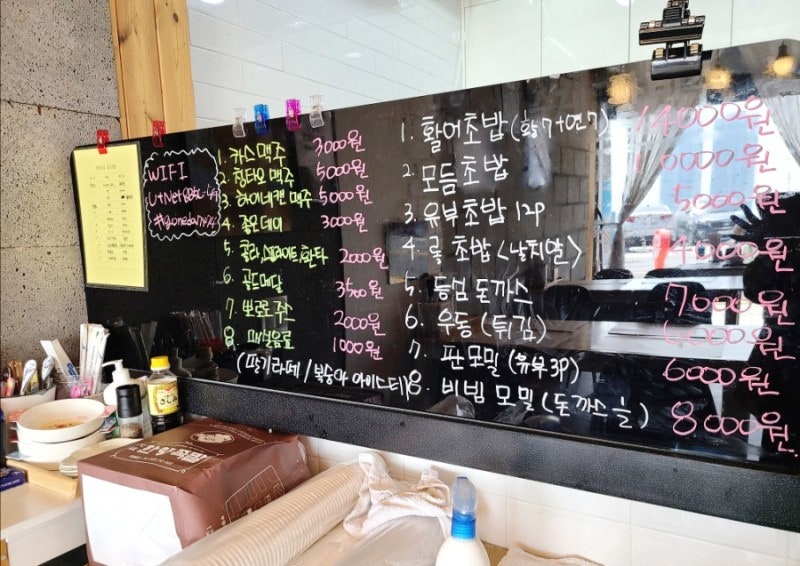 WIFI
1. 카스 맥주 3000원
2. 칭타오 맥주 5000원
3. 하이네켄 맥주 5000원
4. 좋은데이 3000원
5. 콜라, 스프라이트, 환타 2000원
6. 골드메달 3500원
7. 뽀로로 주스 2000원
8. 매실음료 1000원
(딸기라떼 / 복숭아 아이스티)
1. 활어초밥 (활7+연7) 14000원
2. 모듬초밥 10000원
3. 유부초밥 12P 5000원
4. 롤 초밥 <날치알> 14000원
5. 등심 돈까스 7000원
6. 우동 (튀김) 6000원
7. 판모밀 (유부3P) 6000원
8. 비빔 모밀 (돈까스 ½) 8000원